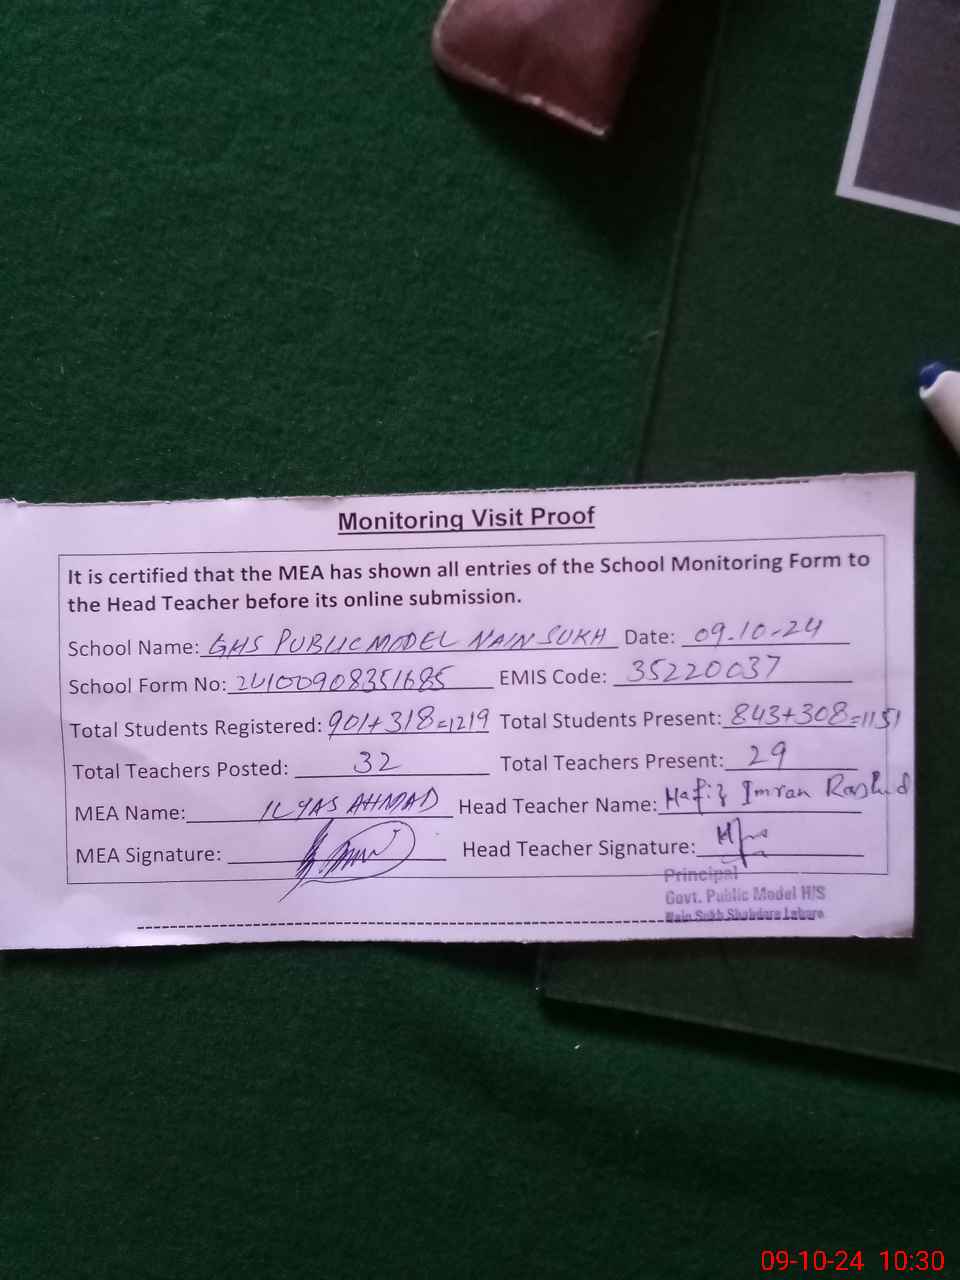 Monitoring Visit Proof
It is certified that the MEA has shown all entries of the School Monitoring Form to
the Head Teacher before its online submission.
School Name: GHS PUBLIC MODEL NAIN SUKH Date: 09-10-24
School Form No: 24100908351685 EMIS Code: 35220037
Total Students Registered: 901+318=1219 Total Students Present: 843+308=1151
Total Teachers Posted: 32 Total Teachers Present: 29
MEA Name: ILYAS AHMAD Head Teacher Name: Hafiz Imran Rashid
MEA Signature: Head Teacher Signature:
Principal
Govt. Public Model H/S
Nain Sukh Shahdara Lahore
09-10-24 10:30